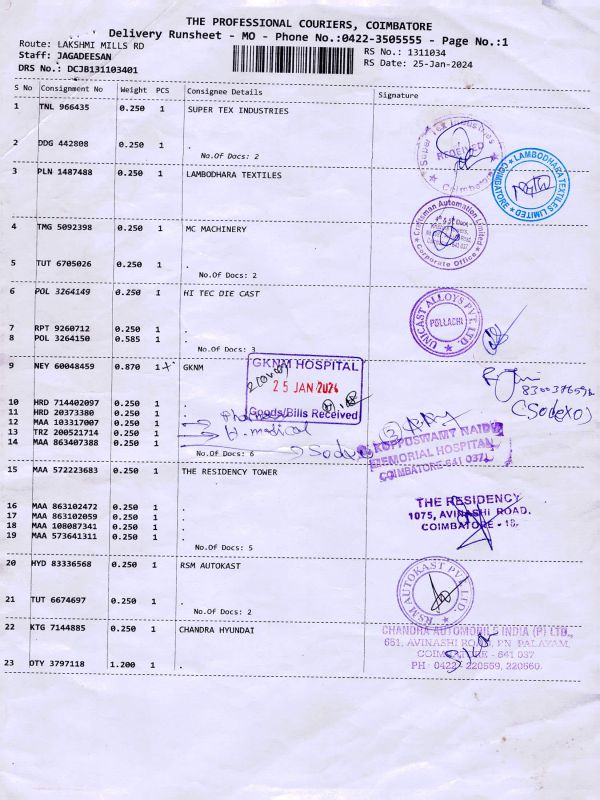 THE PROFESSIONAL COURIERS, COIMBATORE
Delivery Runsheet - MO - Phone No.:0422-3505555 - Page No.:1
Route: LAKSHMI MILLS RD
RS No.: 1311034
Staff: JAGADEESAN
RS Date: 25-Jan-2024
DRS No.: DCJB131103401
S No Consignment No Weight PCS Consignee Details Signature
1 TNL 966435 0.250 1 SUPER TEX INDUSTRIES
2 DDG 442808 0.250 1 .
No.Of Docs: 2
RECEIVED
Coimbatore
3 PLN 1487488 0.250 1 LAMBODHARA TEXTILES
LAMBODHARA TEXTILES LIMITED
COIMBATORE
4 TMG 5092398 0.250 1 MC MACHINERY
Craftsman Automation Limited
Corporate Office
5 TUT 6705026 0.250 1 .
No.Of Docs: 2
6 POL 3264149 0.250 1 HI TEC DIE CAST
UNICAST ALLOYS PVT LTD.
POLLACHI
7 RPT 9260712 0.250 1 .
8 POL 3264150 0.585 1 .
No.Of Docs: 3
9 NEY 60048459 0.870 1 GKNM
GKNM HOSPITAL
25 JAN 2024
Goods/Bills Received
(Sodexo)
10 HRD 714402097 0.250 1 .
11 HRD 20373380 0.250 1 .
12 MAA 103317007 0.250 1
13 TRZ 200521714 0.250 1
H. medical
14 MAA 863407388 0.250 1 .
No.Of Docs: 6
KUPPUSWAMY NAIDU
MEMORIAL HOSPITAL
COIMBATORE-641 037
15 MAA 572223683 0.250 1 THE RESIDENCY TOWER
THE RESIDENCY
1075, AVINASHI ROAD,
COIMBATORE - 18.
16 MAA 863102472 0.250 1 .
17 MAA 863102059 0.250 1 .
18 MAA 108087341 0.250 1 .
19 MAA 573641311 0.250 1 .
No.Of Docs: 5
20 HYD 83336568 0.250 1 RSM AUTOKAST
RSM AUTOKAST PVT LTD.
21 TUT 6674697 0.250 1 .
No.Of Docs: 2
22 KTG 7144885 0.250 1 CHANDRA HYUNDAI
CHANDRA AUTOMOBILE INDIA (P) LTD.,
651, AVINASHI ROAD, PN PALAYAM,
COIMBATORE - 641 037
PH : 0422 - 220559, 220560.
23 OTY 3797118 1.200 1 .